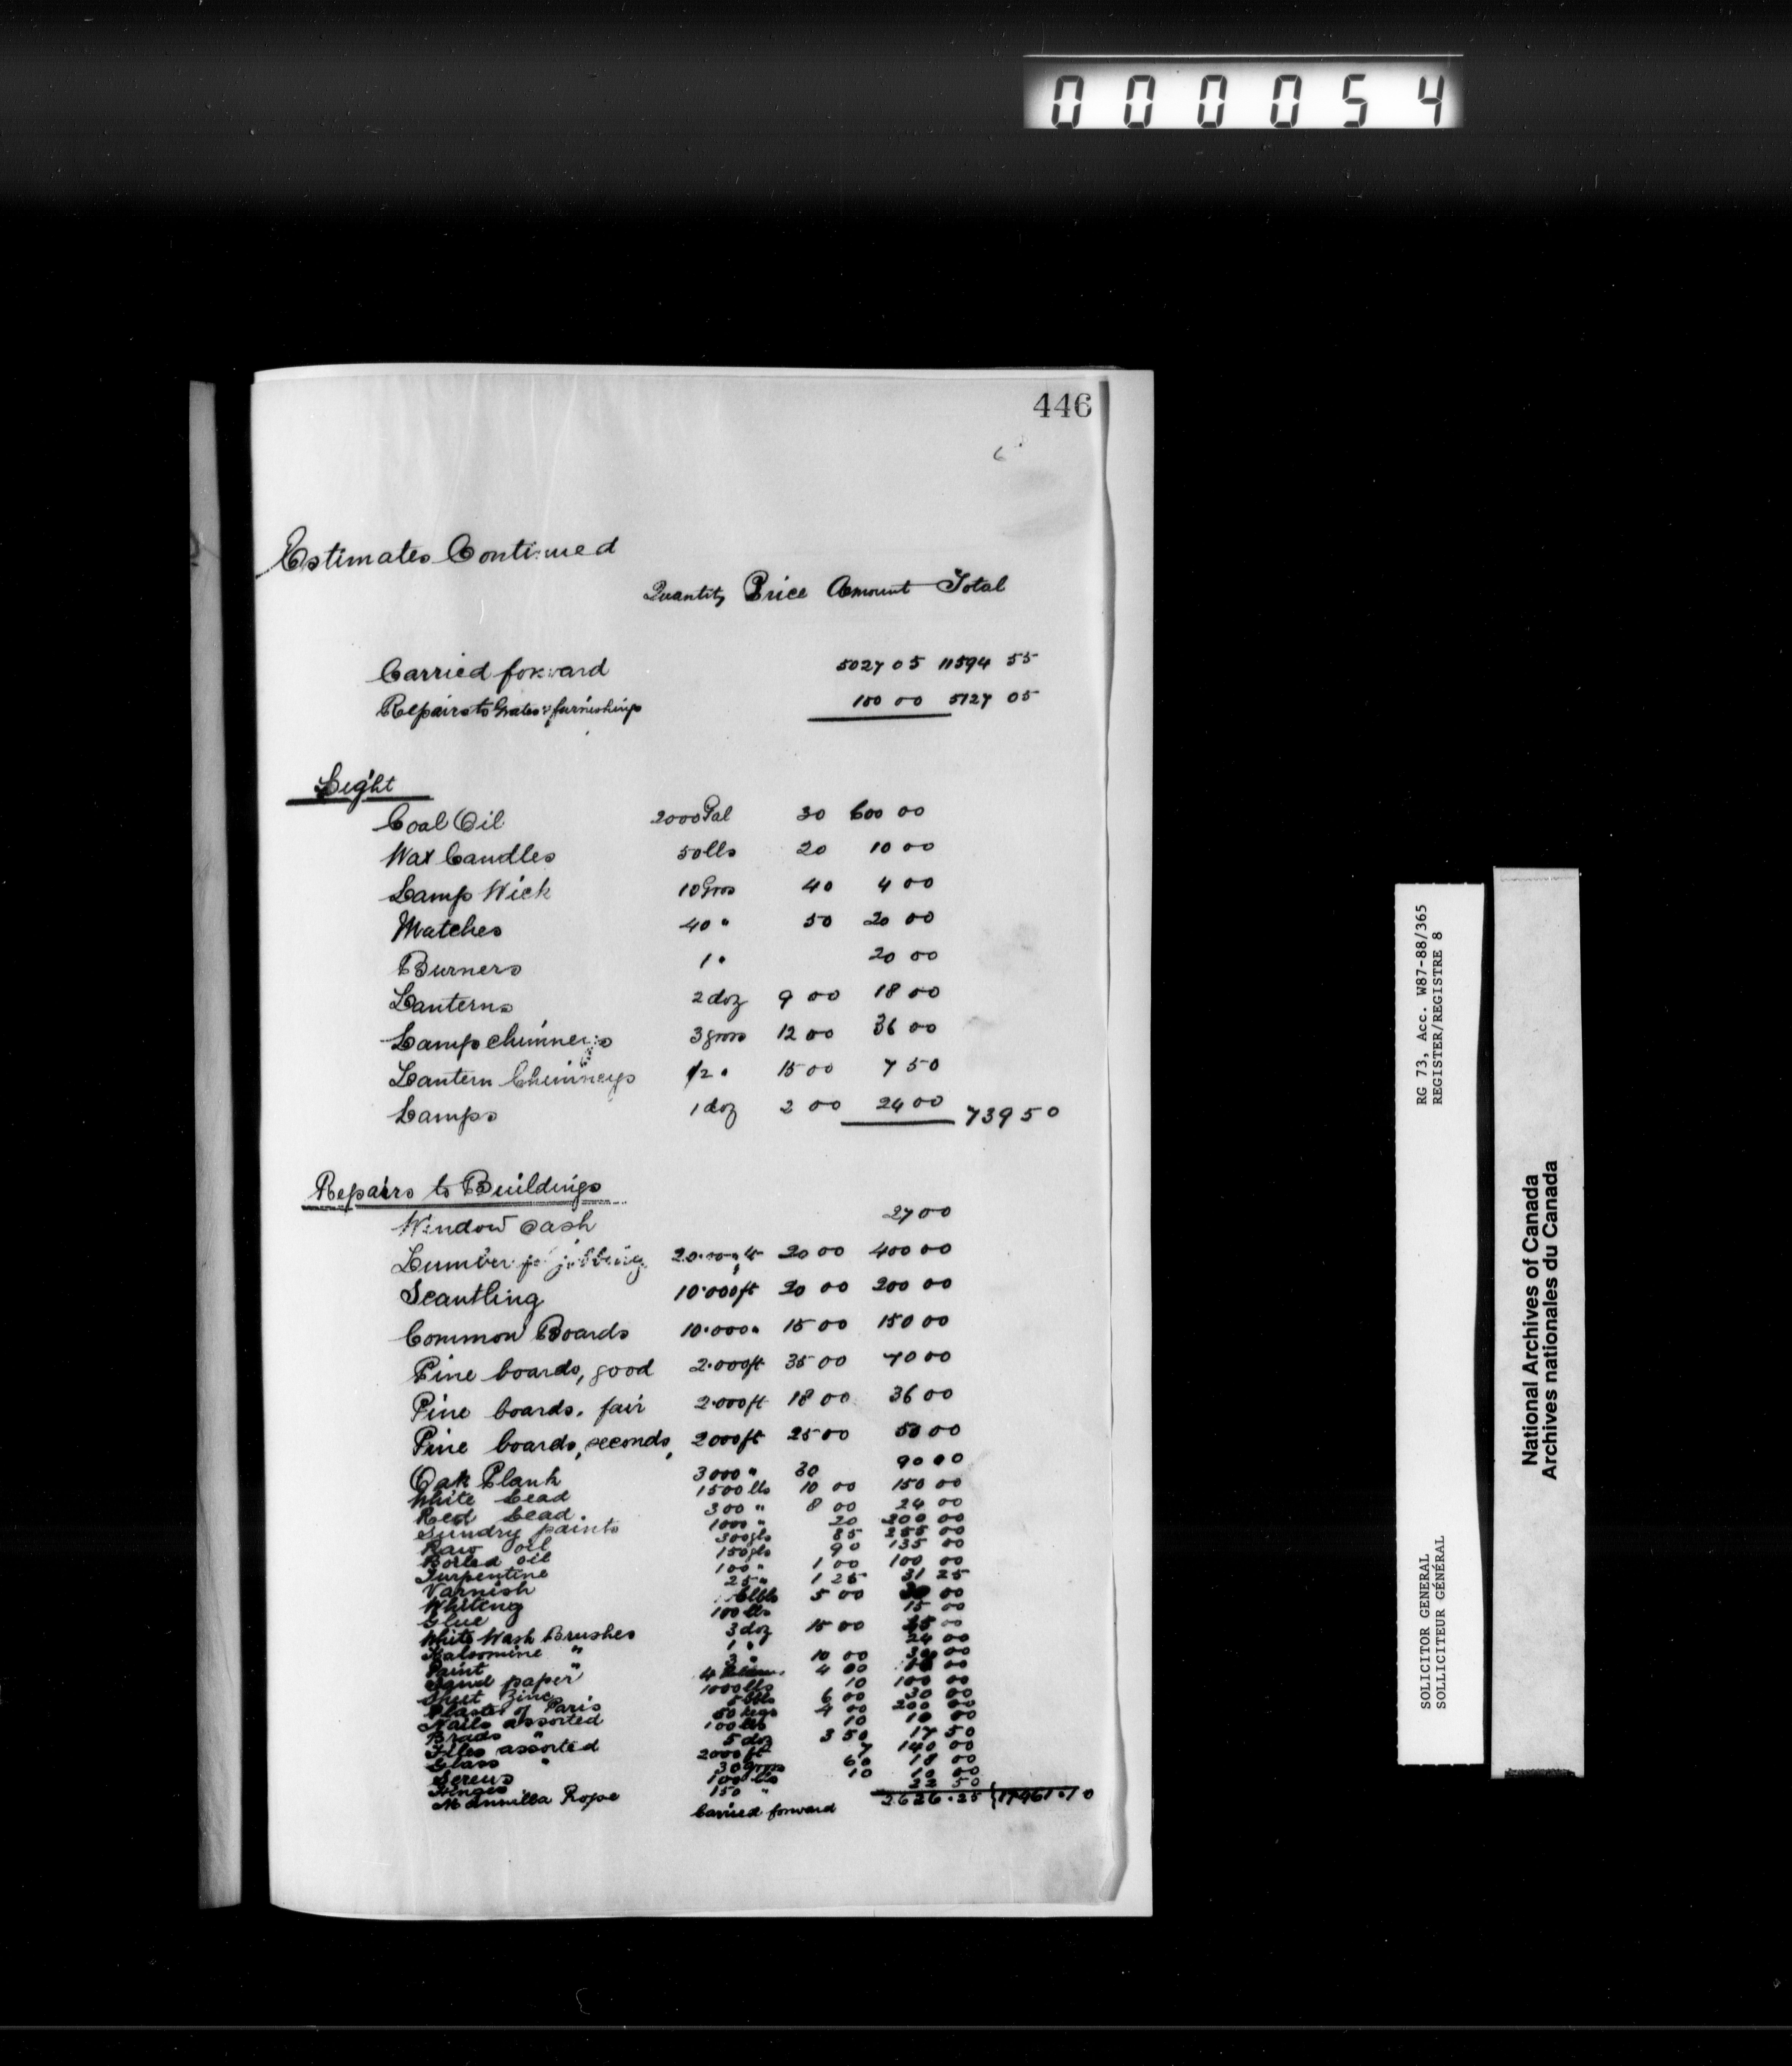 000054
446
Estimates Continued
Quantity Price Amount Total
Carried forward 5027 05 11594 55
Repairs to Grates & furnishings 100 00 5127 05
Light
Coal Oil 2000 Gal 30 600 00
Wax Candles 50 lbs 20 10 00
Lamp Wick 10 Gros 40 4 00
Matches 40 " 50 20 00
Burners 1 " 20 00
Lanterns 2 doz 9 00 18 00
Lamp chimneys 3 gross 12 00 36 00
Lantern Chimneys 1/2 " 15 00 7 50
Lamps 1 doz 2 00 24 00 739 50
Repairs to Buildings
Window Sash 27 00
Lumber for jobbing 20.000 ft 20 00 400 00
Scantling 10.000 ft 20 00 200 00
Common Boards 10.000 " 15 00 150 00
Pine boards, good 2.000 ft 35 00 70 00
Pine boards. fair 2.000 ft 18 00 36 00
Pine boards, seconds, 2000 ft 25 00 50 00
Oak Plank 3000 " 30 90 00
White Lead 1500 lbs 10 00 150 00
Red Lead. 300 " 8 00 24 00
Sundry paints 1000 " 20 200 00
Raw oil 300 gls 85 255 00
Boiled oil 150 gls 90 135 00
Turpentine 100 " 1 00 100 00
Varnish 25 " 1 25 31 25
Whiting 6 bbls 5 00 30 00
Glue 100 lbs 15 00
White Wash Brushes 3 doz 15 00 45 00
Kalsomine " 1 " 24 00
Paint " 3 " 10 00 30 00
Sand paper 4 Ream 4 00 16 00
Sheet Zinc 1000 lbs 10 100 00
Plaster of Paris 5 bbls 6 00 30 00
Nails assorted 50 kegs 4 00 200 00
Brads " 100 lbs 10 10 00
Files assorted 5 doz 3 50 17 50
Glass " 2000 ft 7 140 00
Screws 30 gross 60 18 00
Hinges 100 lbs 10 10 00
Mannilla Rope 150 " 22 50
Carried forward 2626.25 17461.10
RG 73, Acc. W87-88/365
REGISTER/REGISTRE 8
SOLICITOR GENERAL
SOLICITEUR GÉNÉRAL
National Archives of Canada
Archives nationales du Canada